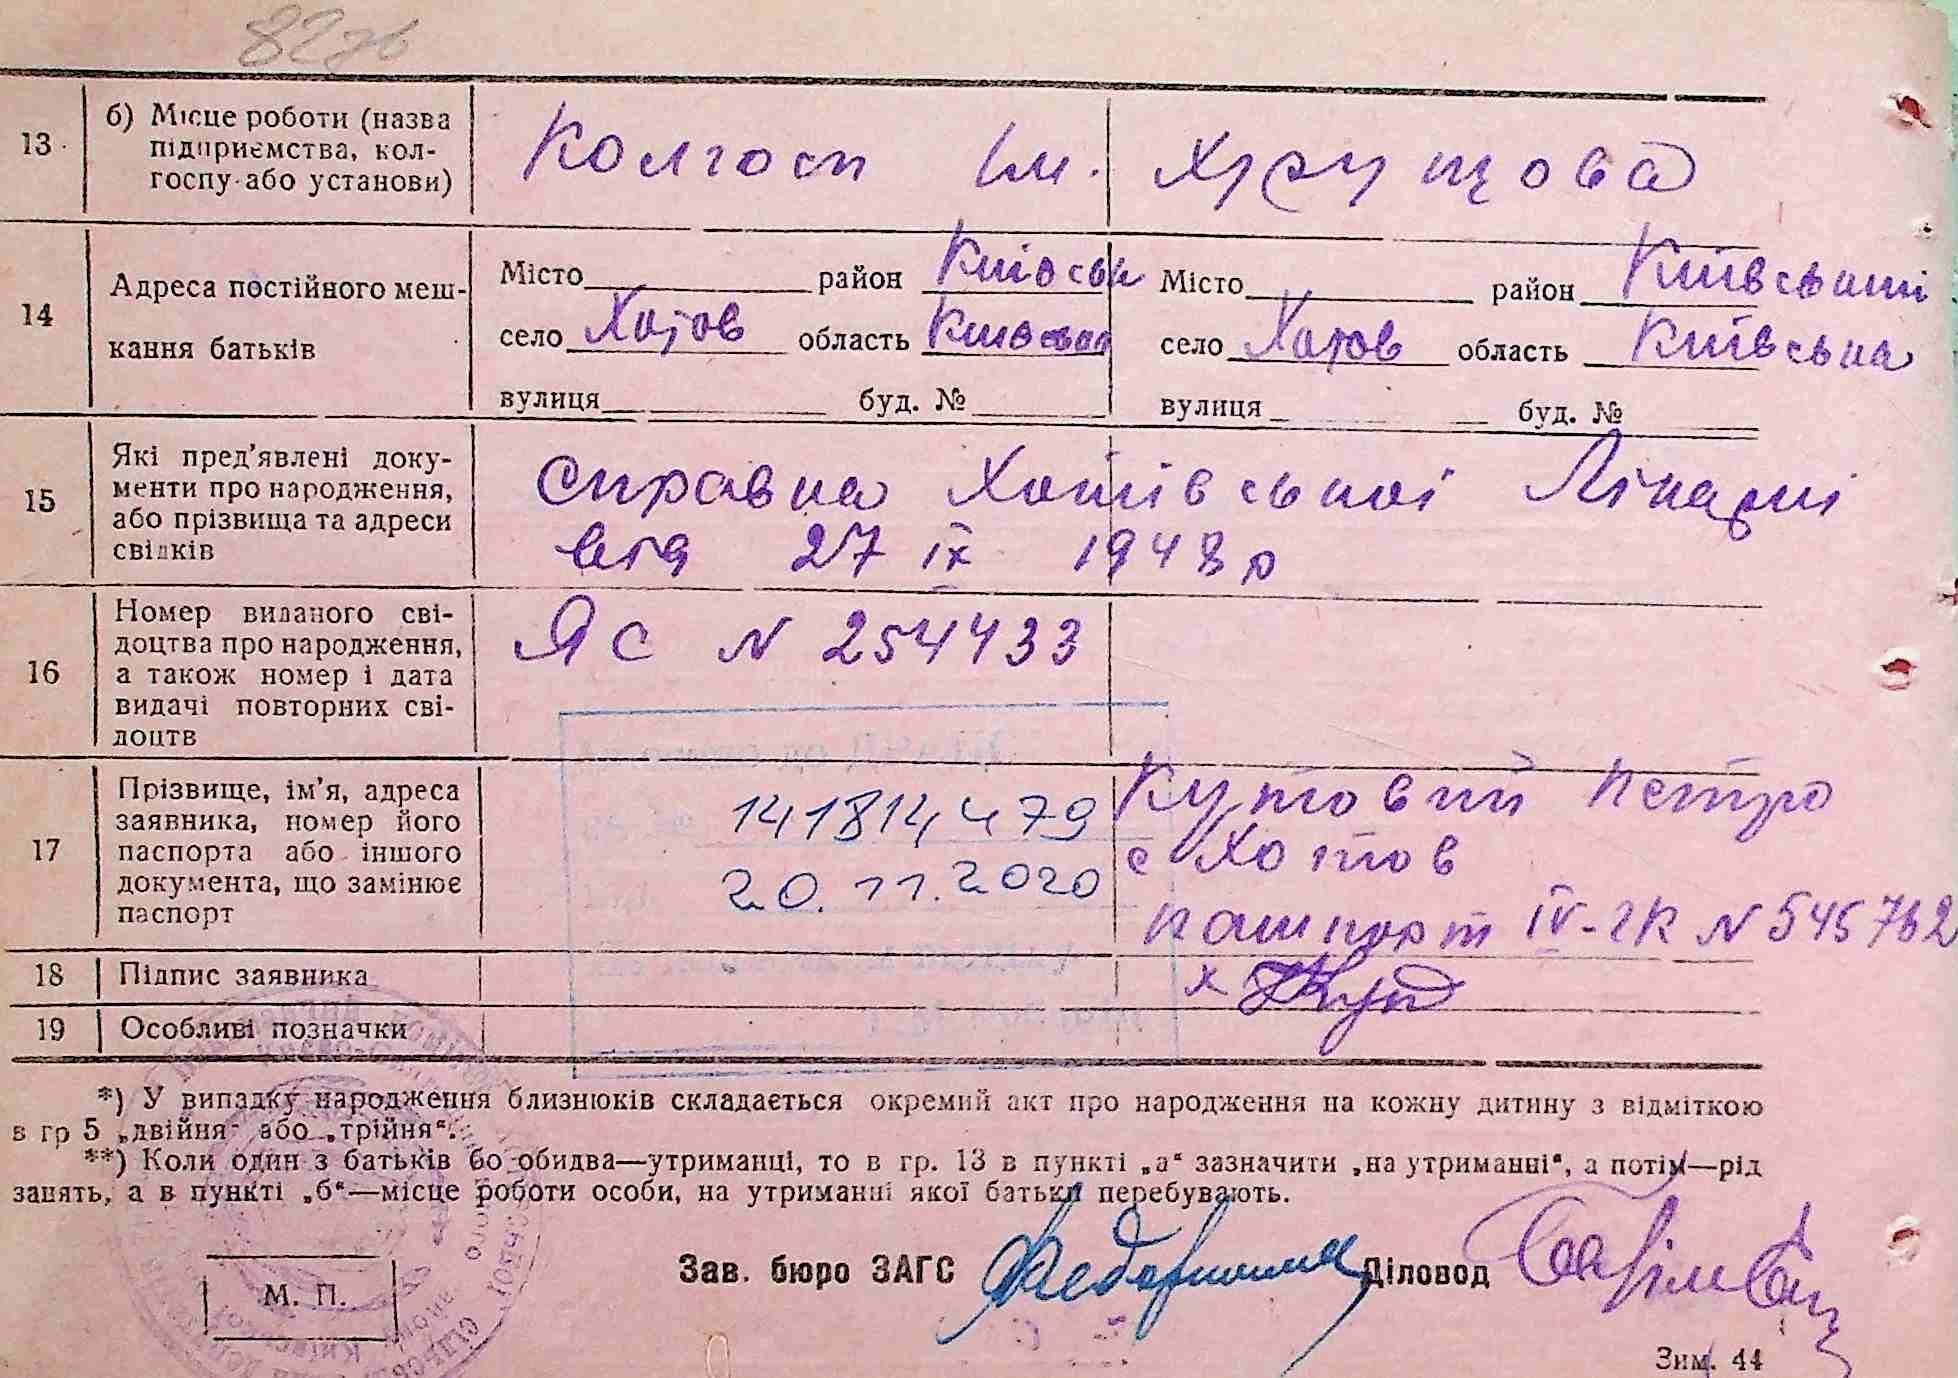 82зв
13 б) Місце роботи (назва підприємства, колгоспу або установи) Колгосп ім. Хрущова
14 Адреса постійного мешкання батьків
Місто район Київськ Місто район Київський
село Хотов область Київська село Хотов область Київська
вулиця буд. № вулиця буд. №
15 Які пред'явлені документи про народження, або прізвища та адреси свідків
Справка Хотівської Лікарні
від 27 ІХ 1948 р
16 Номер виданого свідоцтва про народження, а також номер і дата видачі повторних свідоцтв
ЯС N 254433
17 Прізвище, ім'я, адреса заявника, номер його паспорта або іншого документа, що замінює паспорт
141814479
20.11.2020
Кутовий Петро
с Хотов
пашпорт IV-ГК N 545762
18 Підпис заявника х
19 Особливі позначки
*) У випадку народження близнюків складається окремий акт про народження на кожну дитину з відміткою
в гр 5 „двійня“ або „трійня“.
**) Коли один з батьків бо обидва—утриманці, то в гр. 13 в пункті „а“ зазначити „на утриманні“, а потім—рід
занять, а в пункті „б“—місце роботи особи, на утриманні якої батьки перебувають.
Зав. бюро ЗАГС Діловод
М. П.
Зим. 44